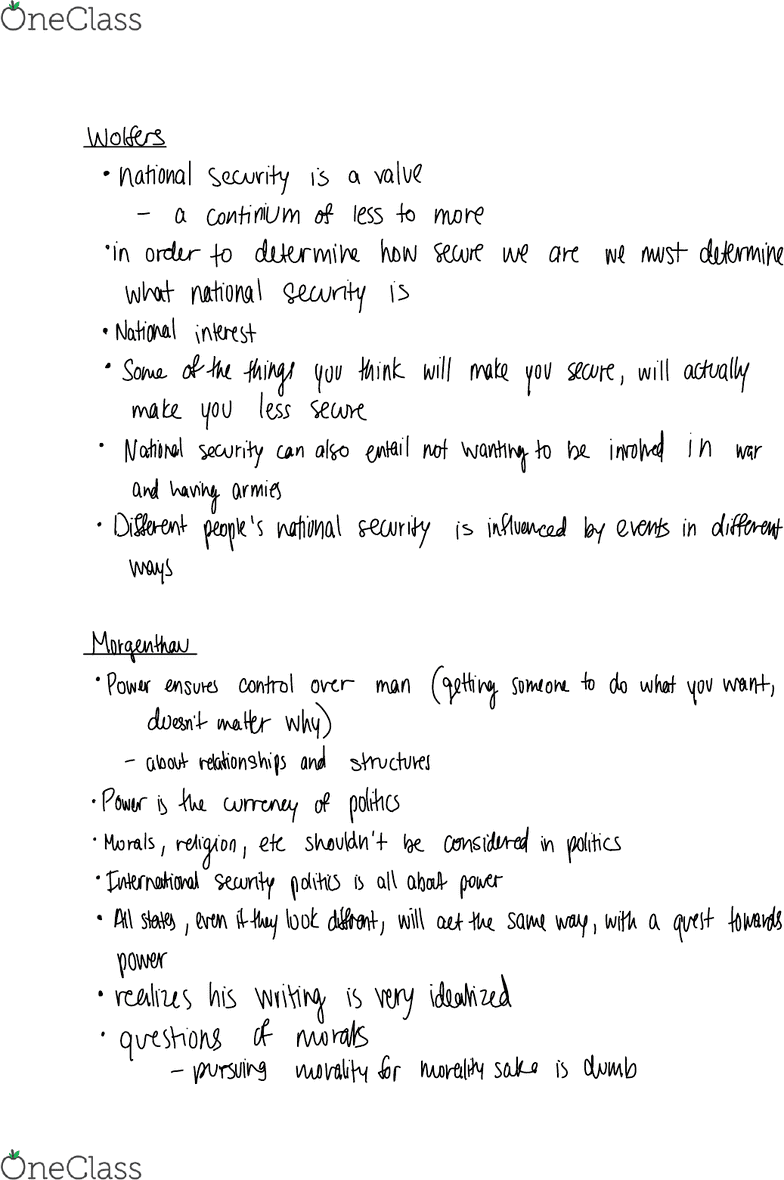 OneClass
Wolfers
• National security is a value
- a continium of less to more
• in order to determine how secure we are we must determine
what national security is
• National interest
• Some of the things you think will make you secure, will actually
make you less secure
• National security can also entail not wanting to be involved in war
and having armies
• Different people's national security is influenced by events in different
ways
Morgenthau
• Power ensures control over man (getting someone to do what you want,
doesn't matter why)
- about relationships and structures
• Power is the currency of politics
• Morals, religion, etc shouldn't be considered in politics
• International security politics is all about power
• All states, even if they look different, will act the same way, with a quest towards
power
• realizes his writing is very idealized
• questions of morals
- pursuing morality for morality sake is dumb
OneClass